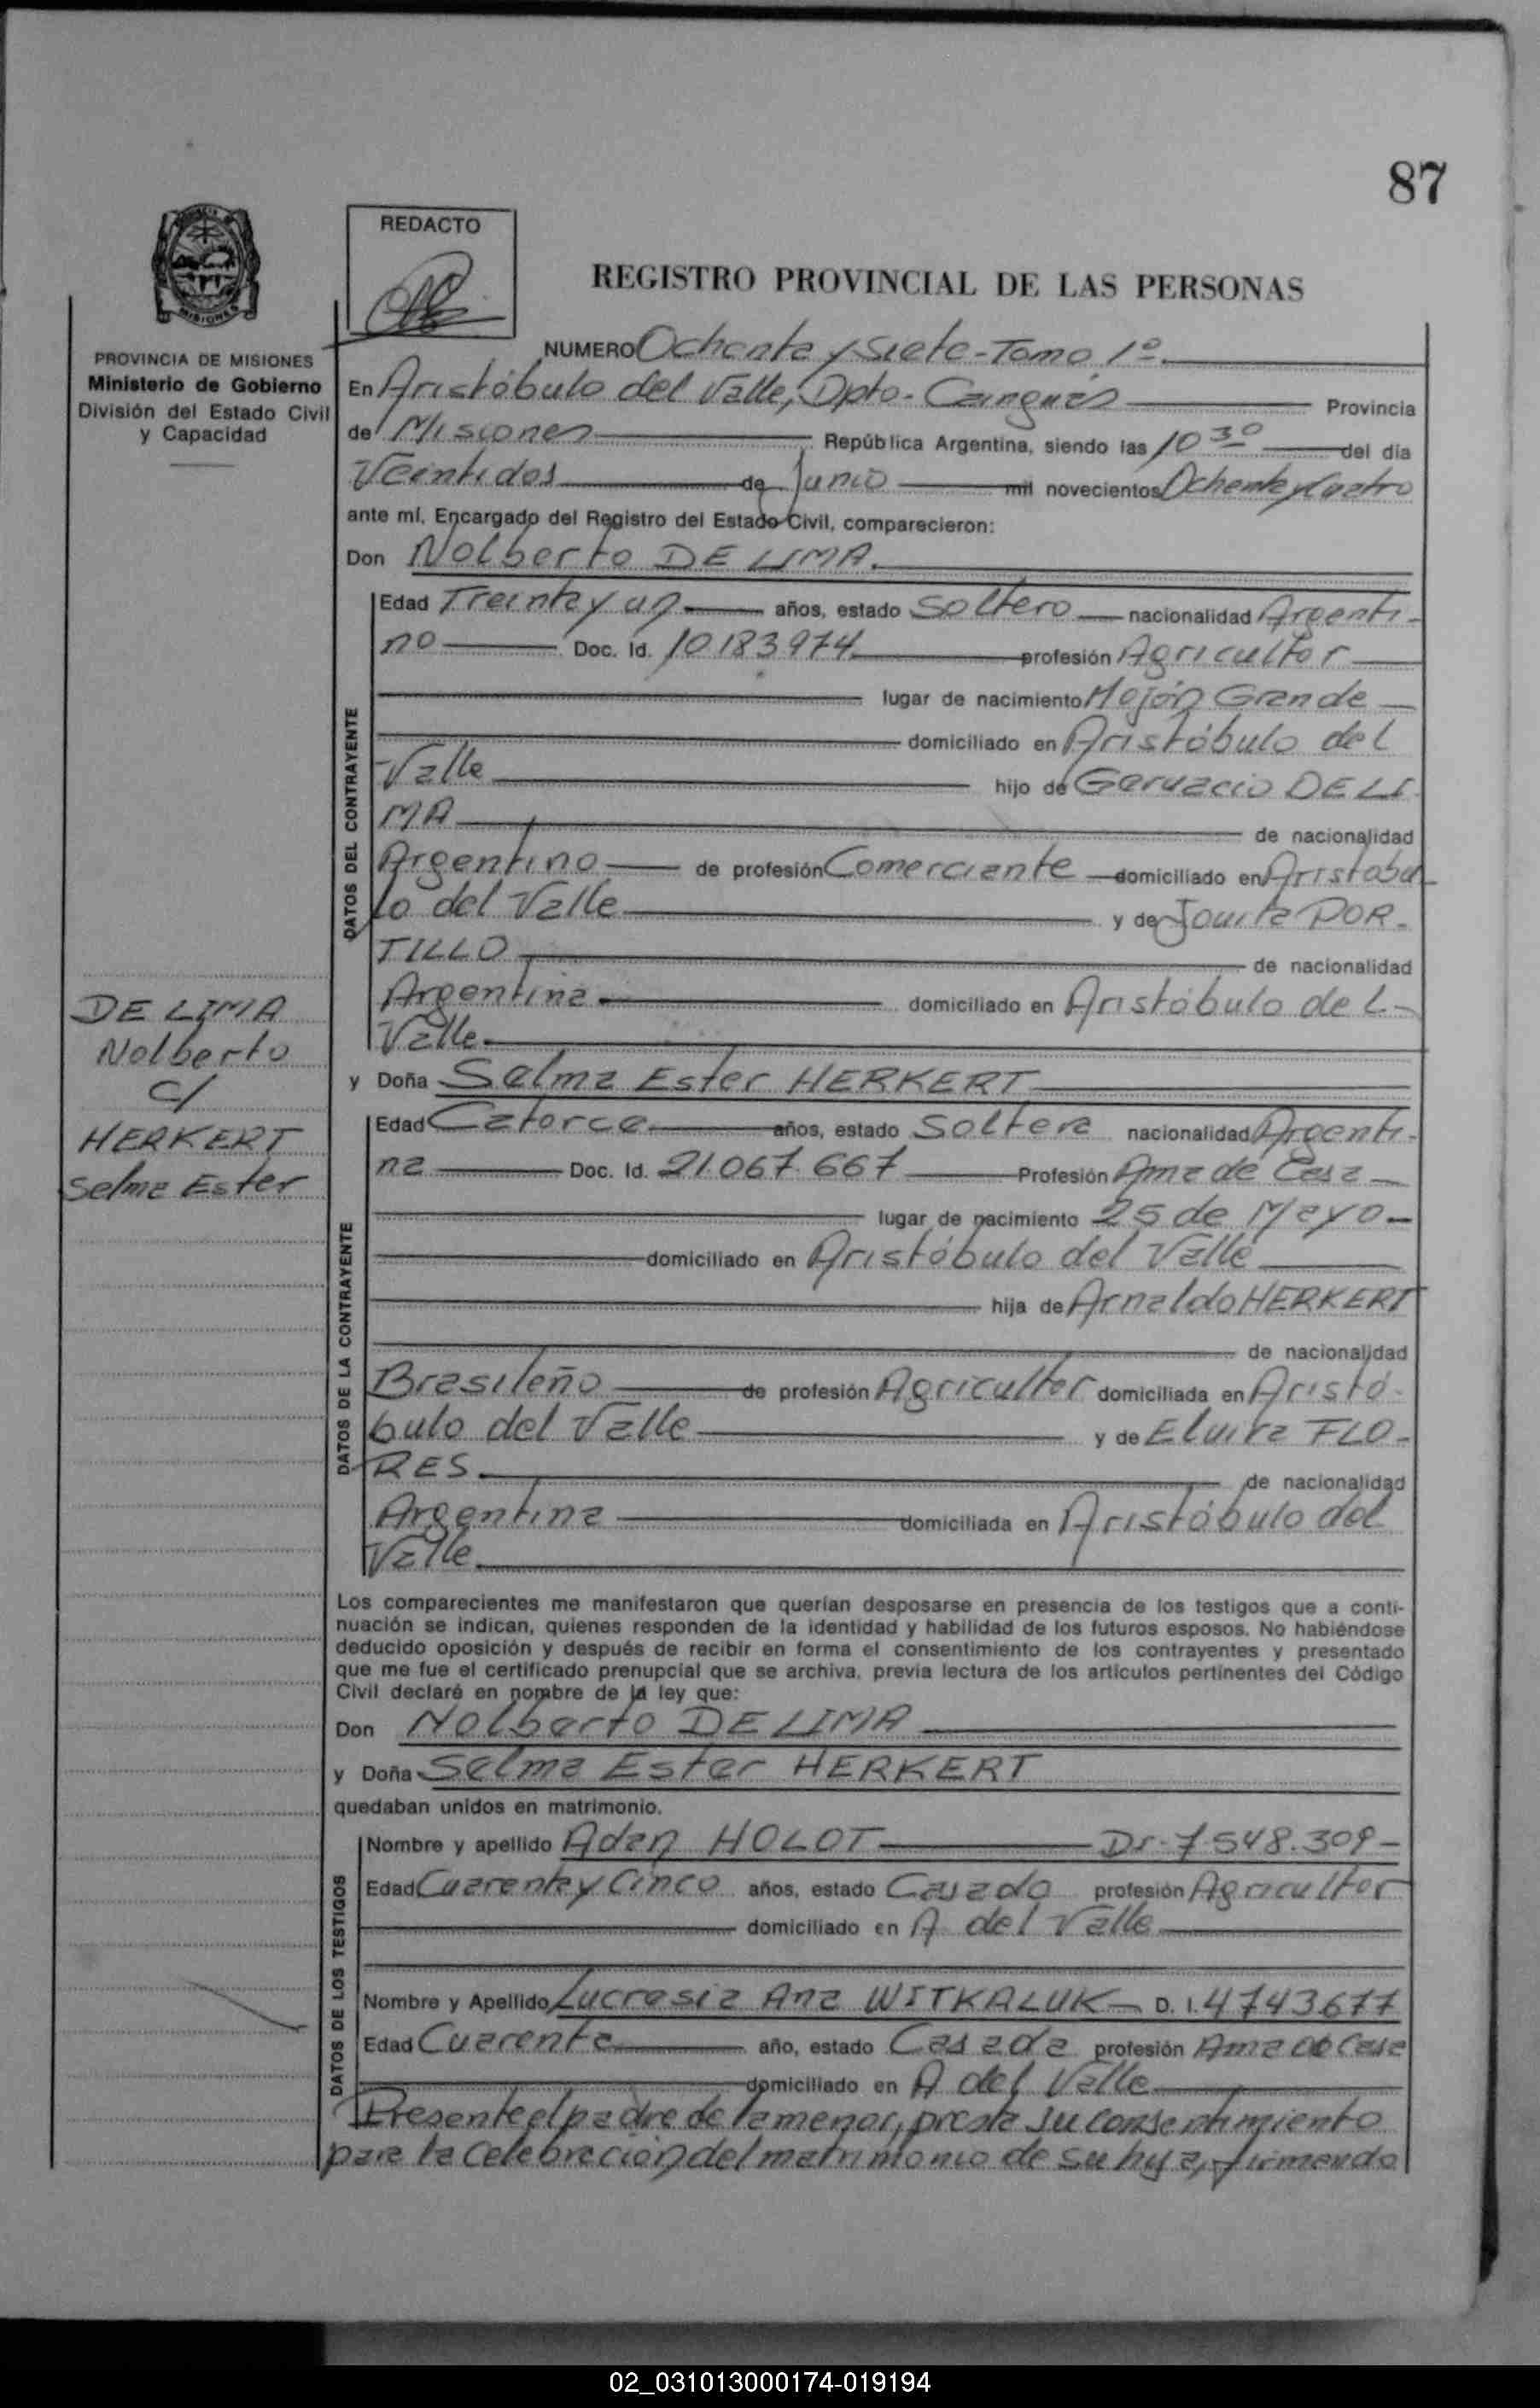 87
REDACTO
REGISTRO PROVINCIAL DE LAS PERSONAS
MISIONES
PROVINCIA DE MISIONES
Ministerio de Gobierno
División del Estado Civil
y Capacidad
NUMERO Ochenta y Siete - Tomo 1º
En Aristóbulo del Valle, Dpto. Cainguás Provincia
de Misiones República Argentina, siendo las 10 30 del día
Veintidos de Junio mil novecientos Ochenta y Cuatro
ante mí, Encargado del Registro del Estado Civil, comparecieron:
Don Nolberto DE LIMA.
DATOS DEL CONTRAYENTE
Edad Treinta y un años, estado Soltero nacionalidad Argenti-
no Doc. Id. 10183974 profesión Agricultor
lugar de nacimiento Mojón Grande
domiciliado en Aristóbulo del
Valle hijo de Gervacio DE LI
MA de nacionalidad
Argentino de profesión Comerciante domiciliado en Aristobu
lo del Valle y de Jovita POR-
TILLO de nacionalidad
Argentina domiciliado en Aristóbulo del
Valle.
DE LIMA
Nolberto
c/
HERKERT
Selma Ester
y Doña Selma Ester HERKERT
DATOS DE LA CONTRAYENTE
Edad Catorce años, estado Soltera nacionalidad Argenti-
na Doc. Id. 21.067.667 Profesión Ama de Casa
lugar de nacimiento 25 de Mayo
domiciliado en Aristóbulo del Valle
hija de Arnaldo HERKERT
de nacionalidad
Brasileño de profesión Agricultor domiciliada en Aristó-
bulo del Valle y de Elvira FLO-
RES. de nacionalidad
Argentina domiciliada en Aristóbulo del
Valle.
Los comparecientes me manifestaron que querían desposarse en presencia de los testigos que a conti-
nuación se indican, quienes responden de la identidad y habilidad de los futuros esposos. No habiéndose
deducido oposición y después de recibir en forma el consentimiento de los contrayentes y presentado
que me fue el certificado prenupcial que se archiva, previa lectura de los artículos pertinentes del Código
Civil declaré en nombre de la ley que:
Don Nolberto DE LIMA
y Doña Selma Ester HERKERT
quedaban unidos en matrimonio.
DATOS DE LOS TESTIGOS
Nombre y apellido Adan HOLOT DI- 7.548.309-
Edad Cuarenta y Cinco años, estado Casado profesión Agricultor
domiciliado en A. del Valle
Nombre y Apellido Lucresia Ana WITKALUK D. I. 4743677
Edad Cuarenta año, estado Casada profesión Ama de Casa
domiciliado en A del Valle
Presente el padre de la menor, presta su consentimiento
para la celebracion del matrimonio de su hija, firmando
02_031013000174-019194